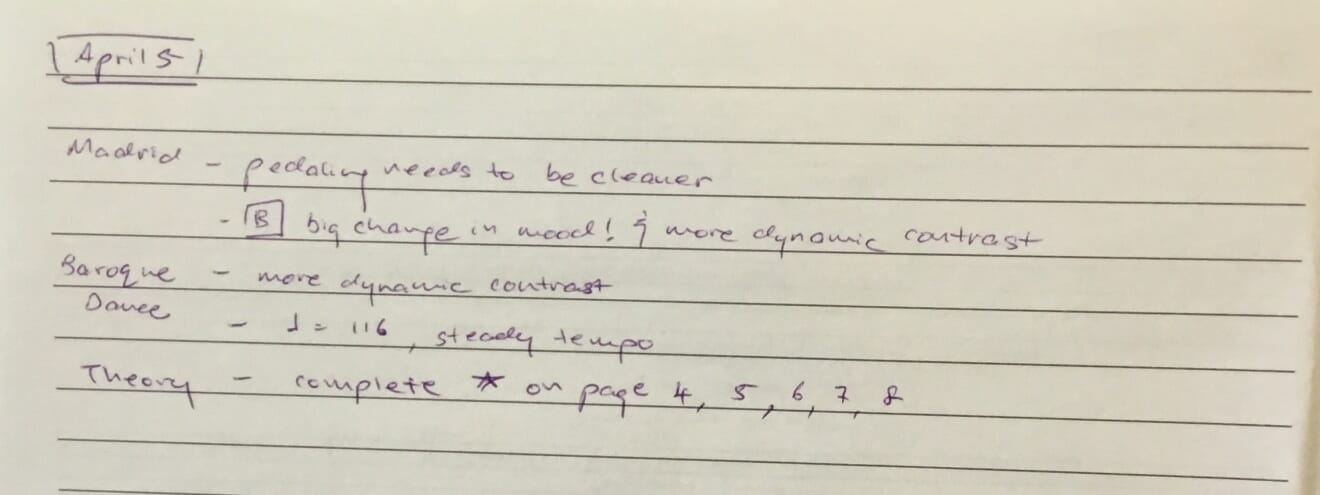 April 5
Madrid - pedaling needs to be cleaner
- B big change in mood! & more dynamic contrast
Baroque - more dynamic contrast
Dance
- ♩ = 116, steady tempo
Theory - complete ★ on page 4, 5, 6, 7, 8